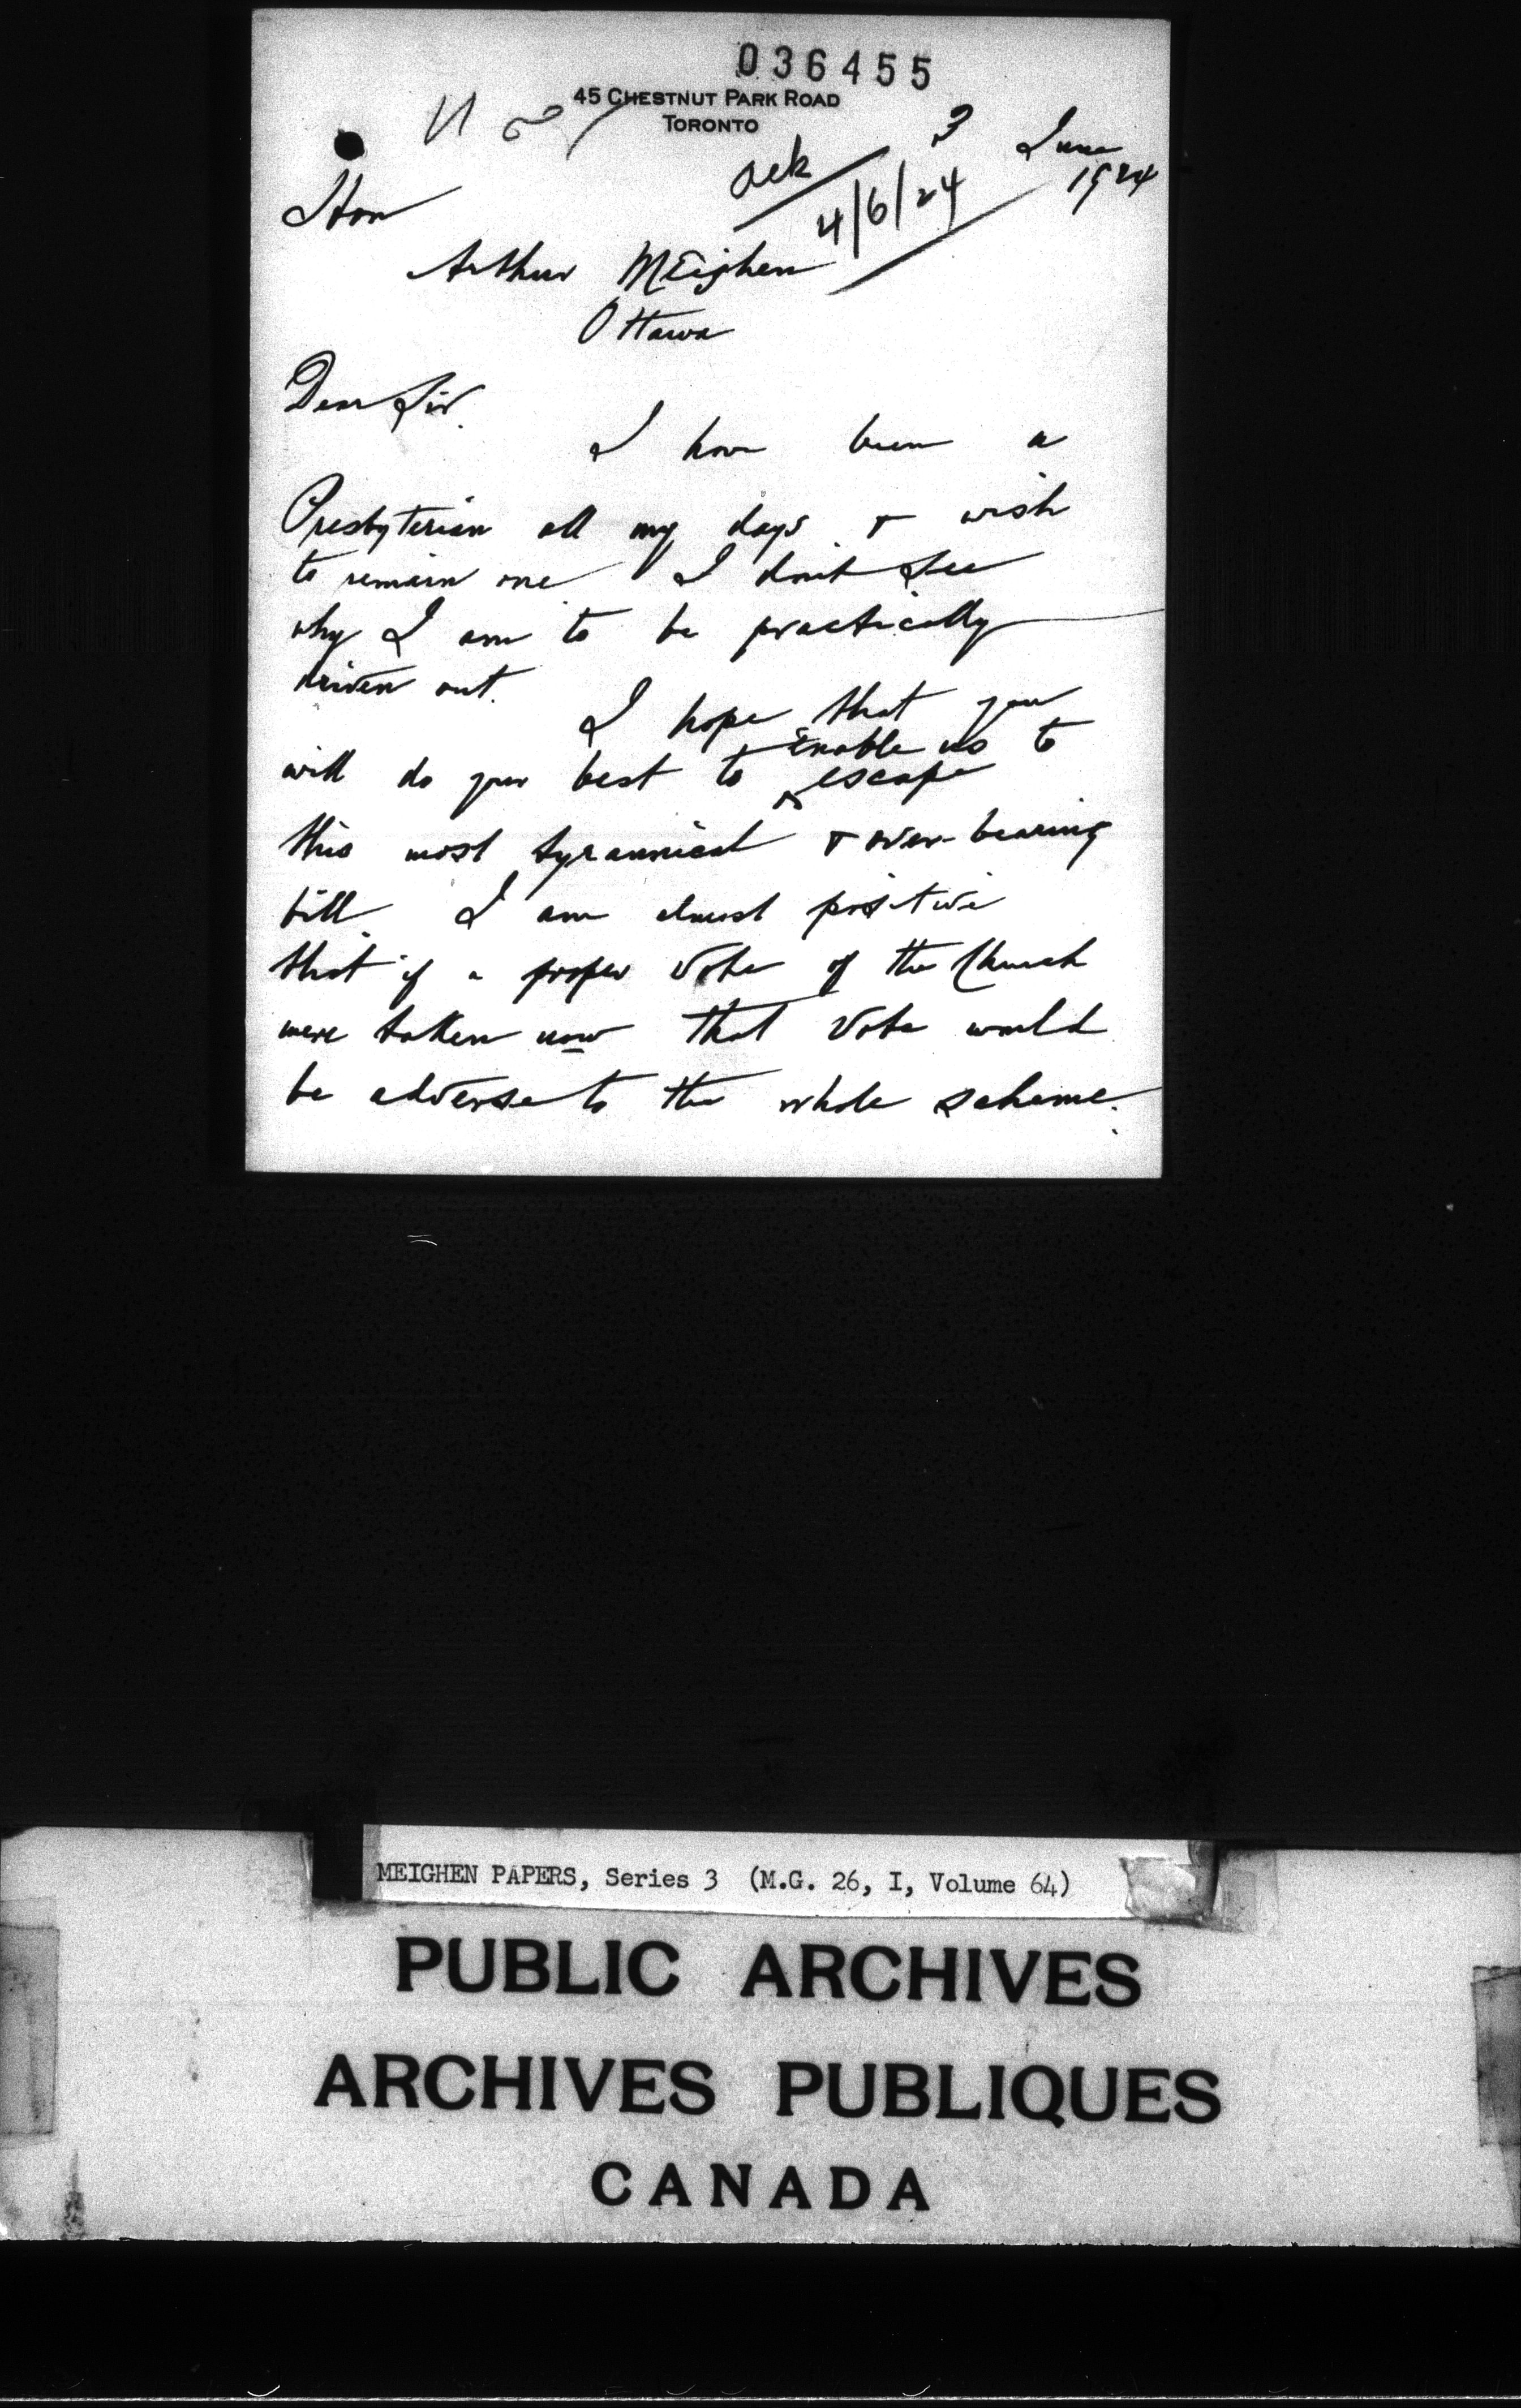 036455
45 CHESTNUT PARK ROAD
TORONTO
3 June
1924
ack
4/6/24
Hon
Arthur MEighen
Ottawa
Dear Sir.
I have been a
Presbyterian all my days & wish
to remain one. I don't see
why I am to be practically
driven out.
I hope that you
will do your best to enable us to
escape
this most tyrannical & over-bearing
bill. I am almost positive
that if a proper vote of the Church
were taken now that vote would
be adverse to the whole scheme.
MEIGHEN PAPERS, Series 3 (M.G. 26, I, Volume 64)
PUBLIC ARCHIVES
ARCHIVES PUBLIQUES
CANADA